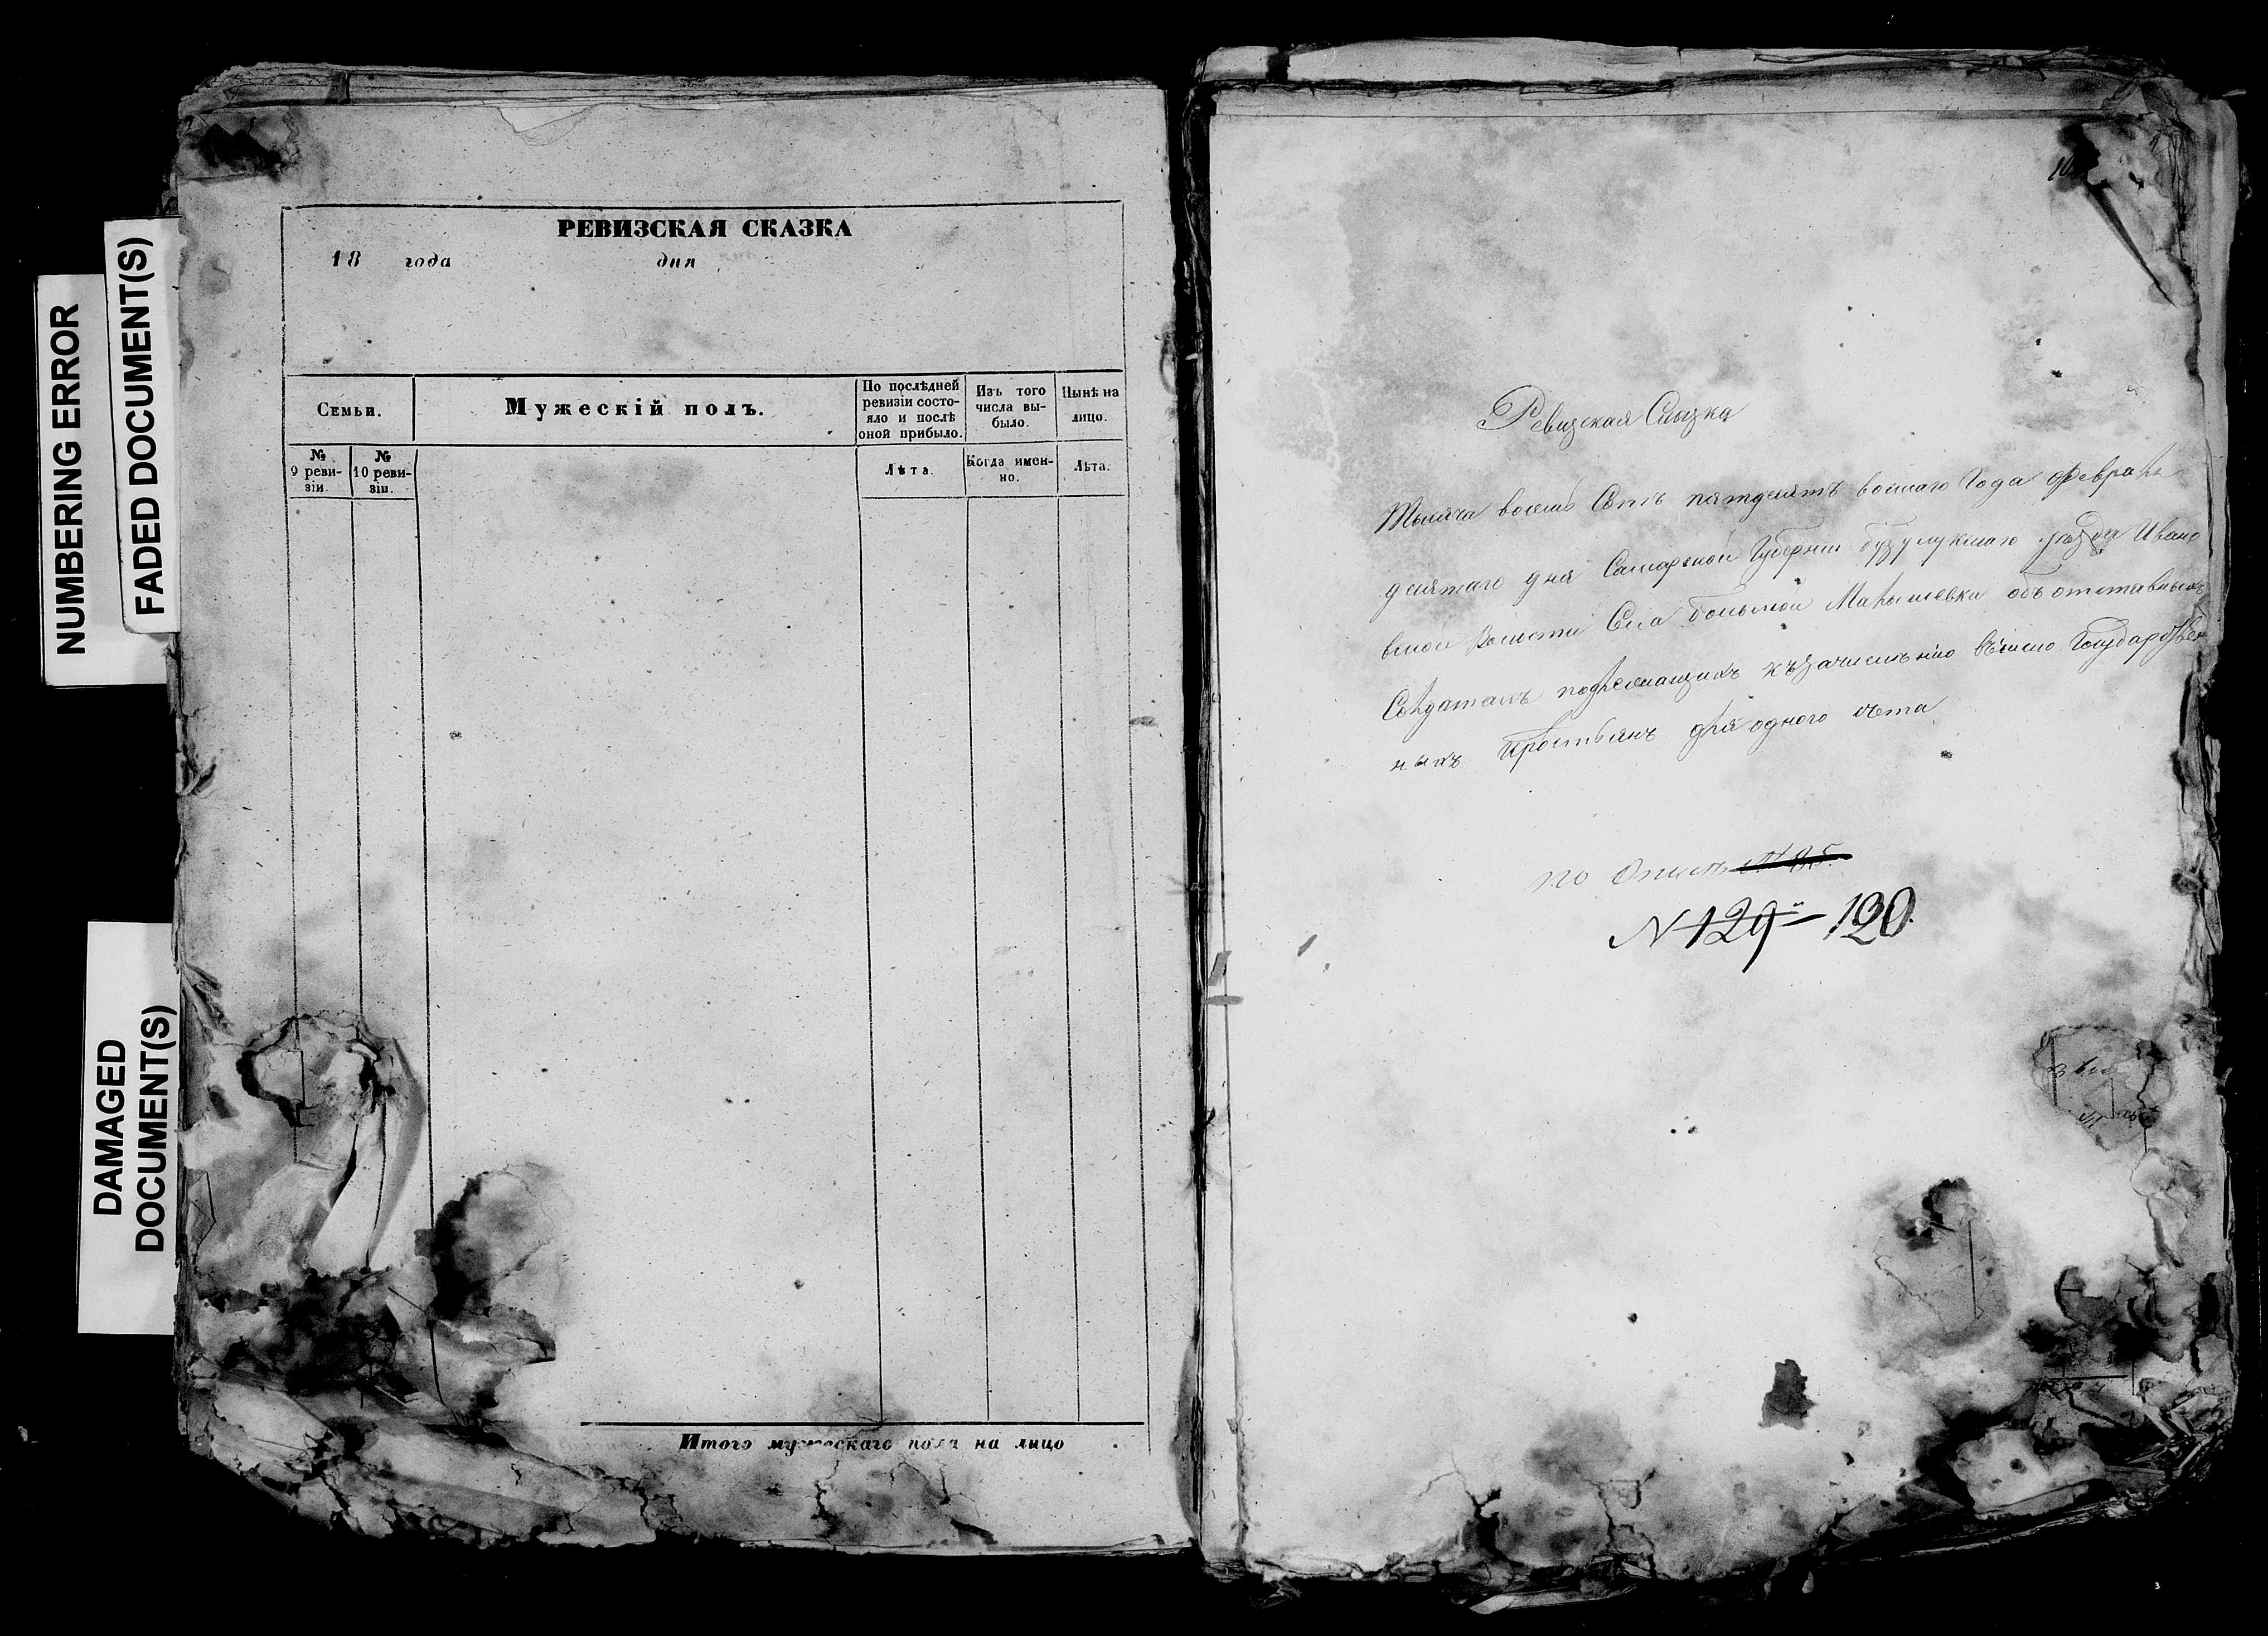 NUMBERING ERROR
FADED DOCUMENT(S)
DAMAGED
DOCUMENT(S)
РЕВИЗСКАЯ СКАЗКА
18 года дня
Семьи.
Мужескій полъ.
По послѣдней
ревизіи состо-
яло и послѣ
оной прибыло.
Изъ того
числа вы-
было.
Нынѣ на
лицо.
№
9 реви-
зіи.
№
10 реви-
зіи.
Лѣта.
Когда имен-
но.
Лѣта.
Итого мужескаго пола на лицо
Ревизская Сказка
Тысяча восемь Сотъ пятдесятъ восмаго Года Февраля
десятаго дня Самарской Губернии бузулукскаго уѣзда Ивано
вской Волости Села большой Малышевки объ отставныхъ
Солдатахъ подлежащихъ къ зачислѣнію въ число Государствен
ныхъ Крестьянъ для одного счета
по Описи № 85.
N 129 - 120.